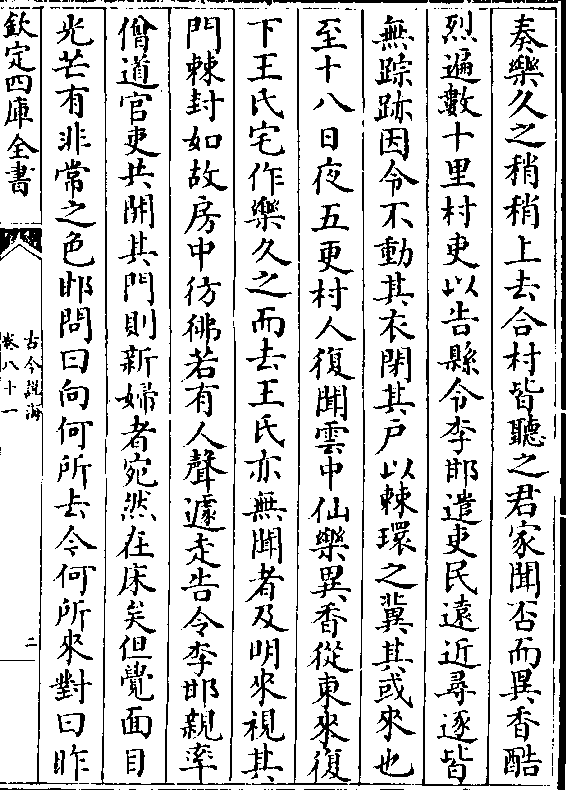 奏樂久之稍稍上去合村皆聽之君家聞否而異香酷
烈遍數十里村吏以告縣令李邯遣吏民遠近尋逐皆
無踪跡因令不動其衣閉其戶以棘環之冀其或來也
至十八日夜五更村人復聞雲中仙樂異香從東來復
下王氏宅作樂久之而去王氏亦無聞者及明來視其
門棘封如故房中彷彿若有人聲遽走告令李邯親率
僧道官吏共開其門則新婦者宛然在床矣但覺面目
光芒有非常之色邯問曰向何所去今何所來對曰昨
欽定四庫全書
古今說海
卷八十一
二